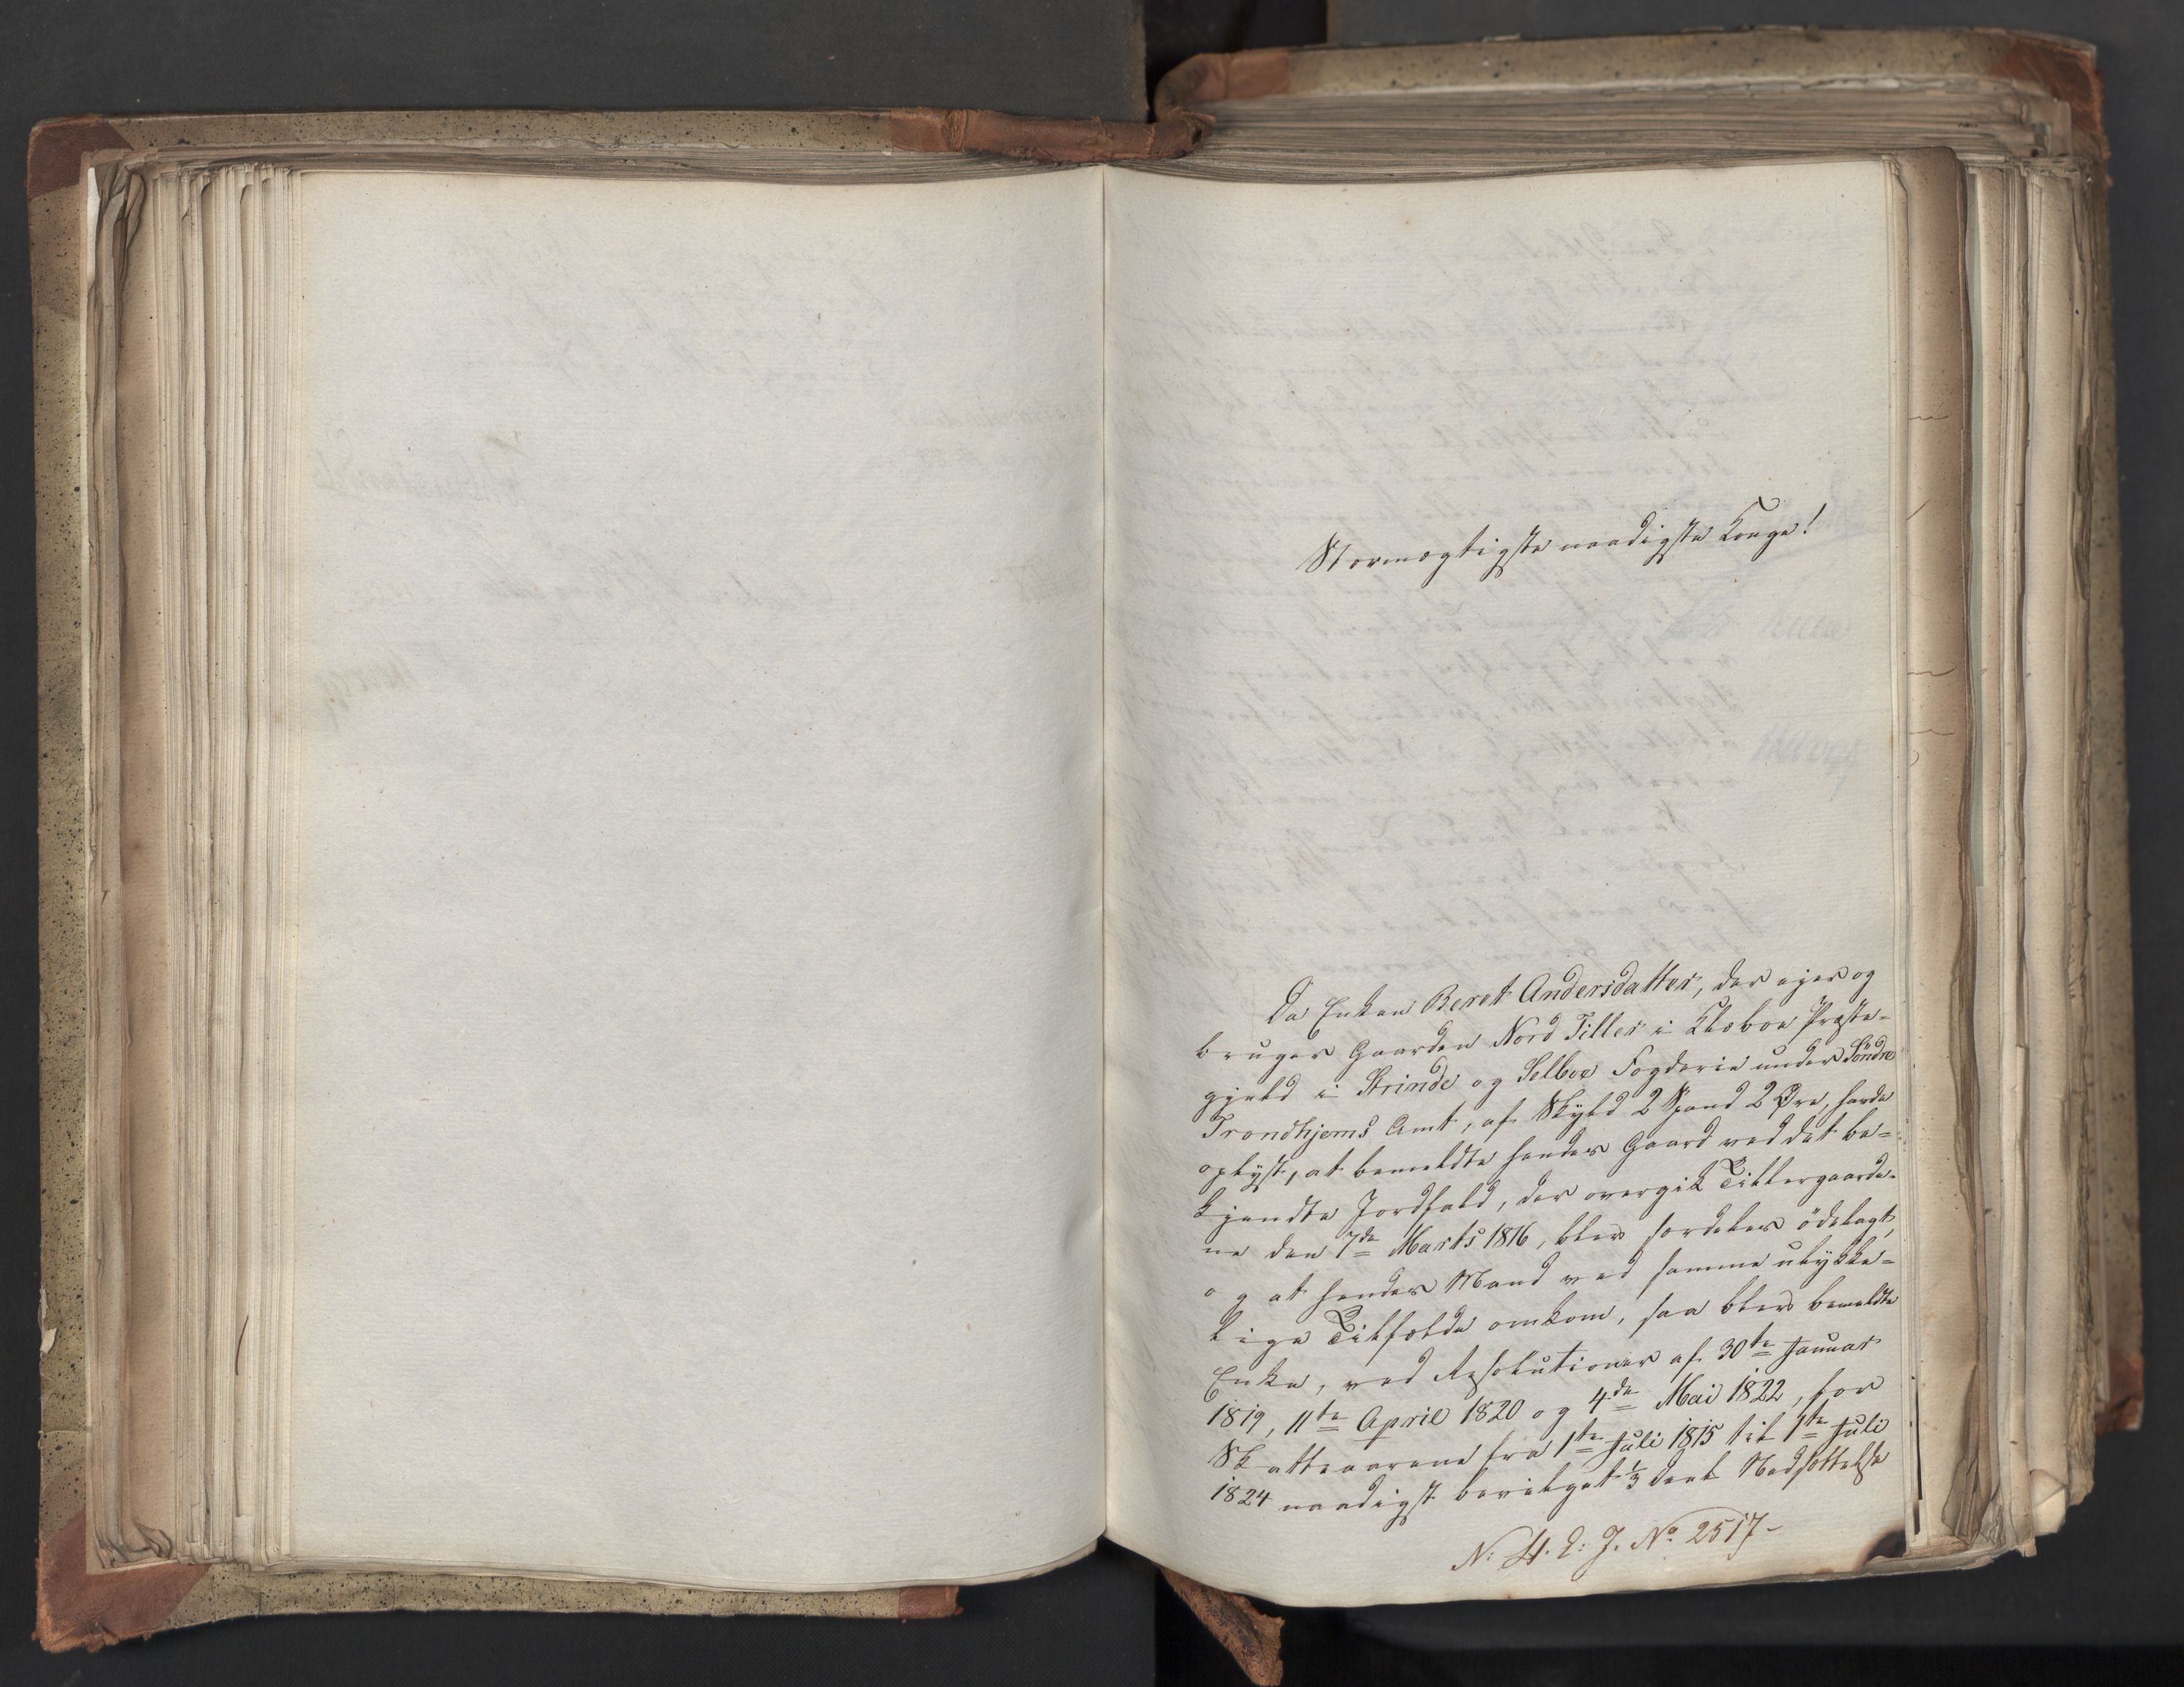 Stormægtigste naadigste Konge!
Da Enken Beret Andersdatter, der ejer og
bruger Gaarden Nord Tiller i Kleboe Præste-
gjeld i Strinde og Selboe Fogderie under Söndre
Trondhjems Amt, af Skyld 2 Spand 2 Øre, havde
oplyst, at bemeldte hendes Gaard ved det be-
kjendte Jordfald, der overgik Tillergaarde-
ne den 7de Marts 1816, blev fordeles ödelagt,
og at hendes Mand ved samme ulykke-
lige Tilfælde omkom, saa blev bemeldte
Enke, ved Resolutioner af 30te Januar
1819, 11te April 1820 og 4de Mai 1822, for
Skatteaarene fra 1te Juli 1815 til 1te Juli
1824 naadigst bevilget 1/3 Deel Nedsættelse
N: H. I: J. No 2517-